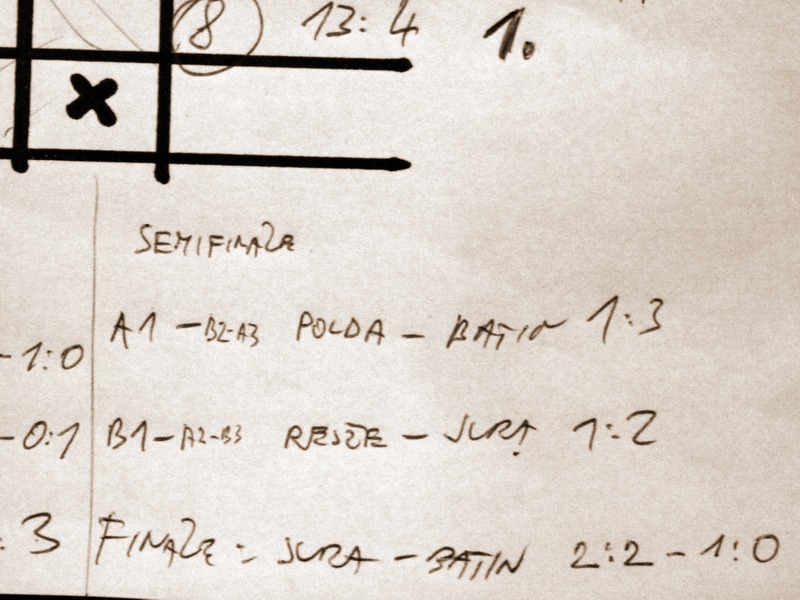 8 13:4 1.
X
SEMIFINALE
A1 - B2-A3 POLDA - BATIN 1:3
- 1:0
- 0:1 B1 - A2-B3 RESZTE - JURA 1:2
: 3 FINALE : JURA - BATIN 2:2 - 1:0